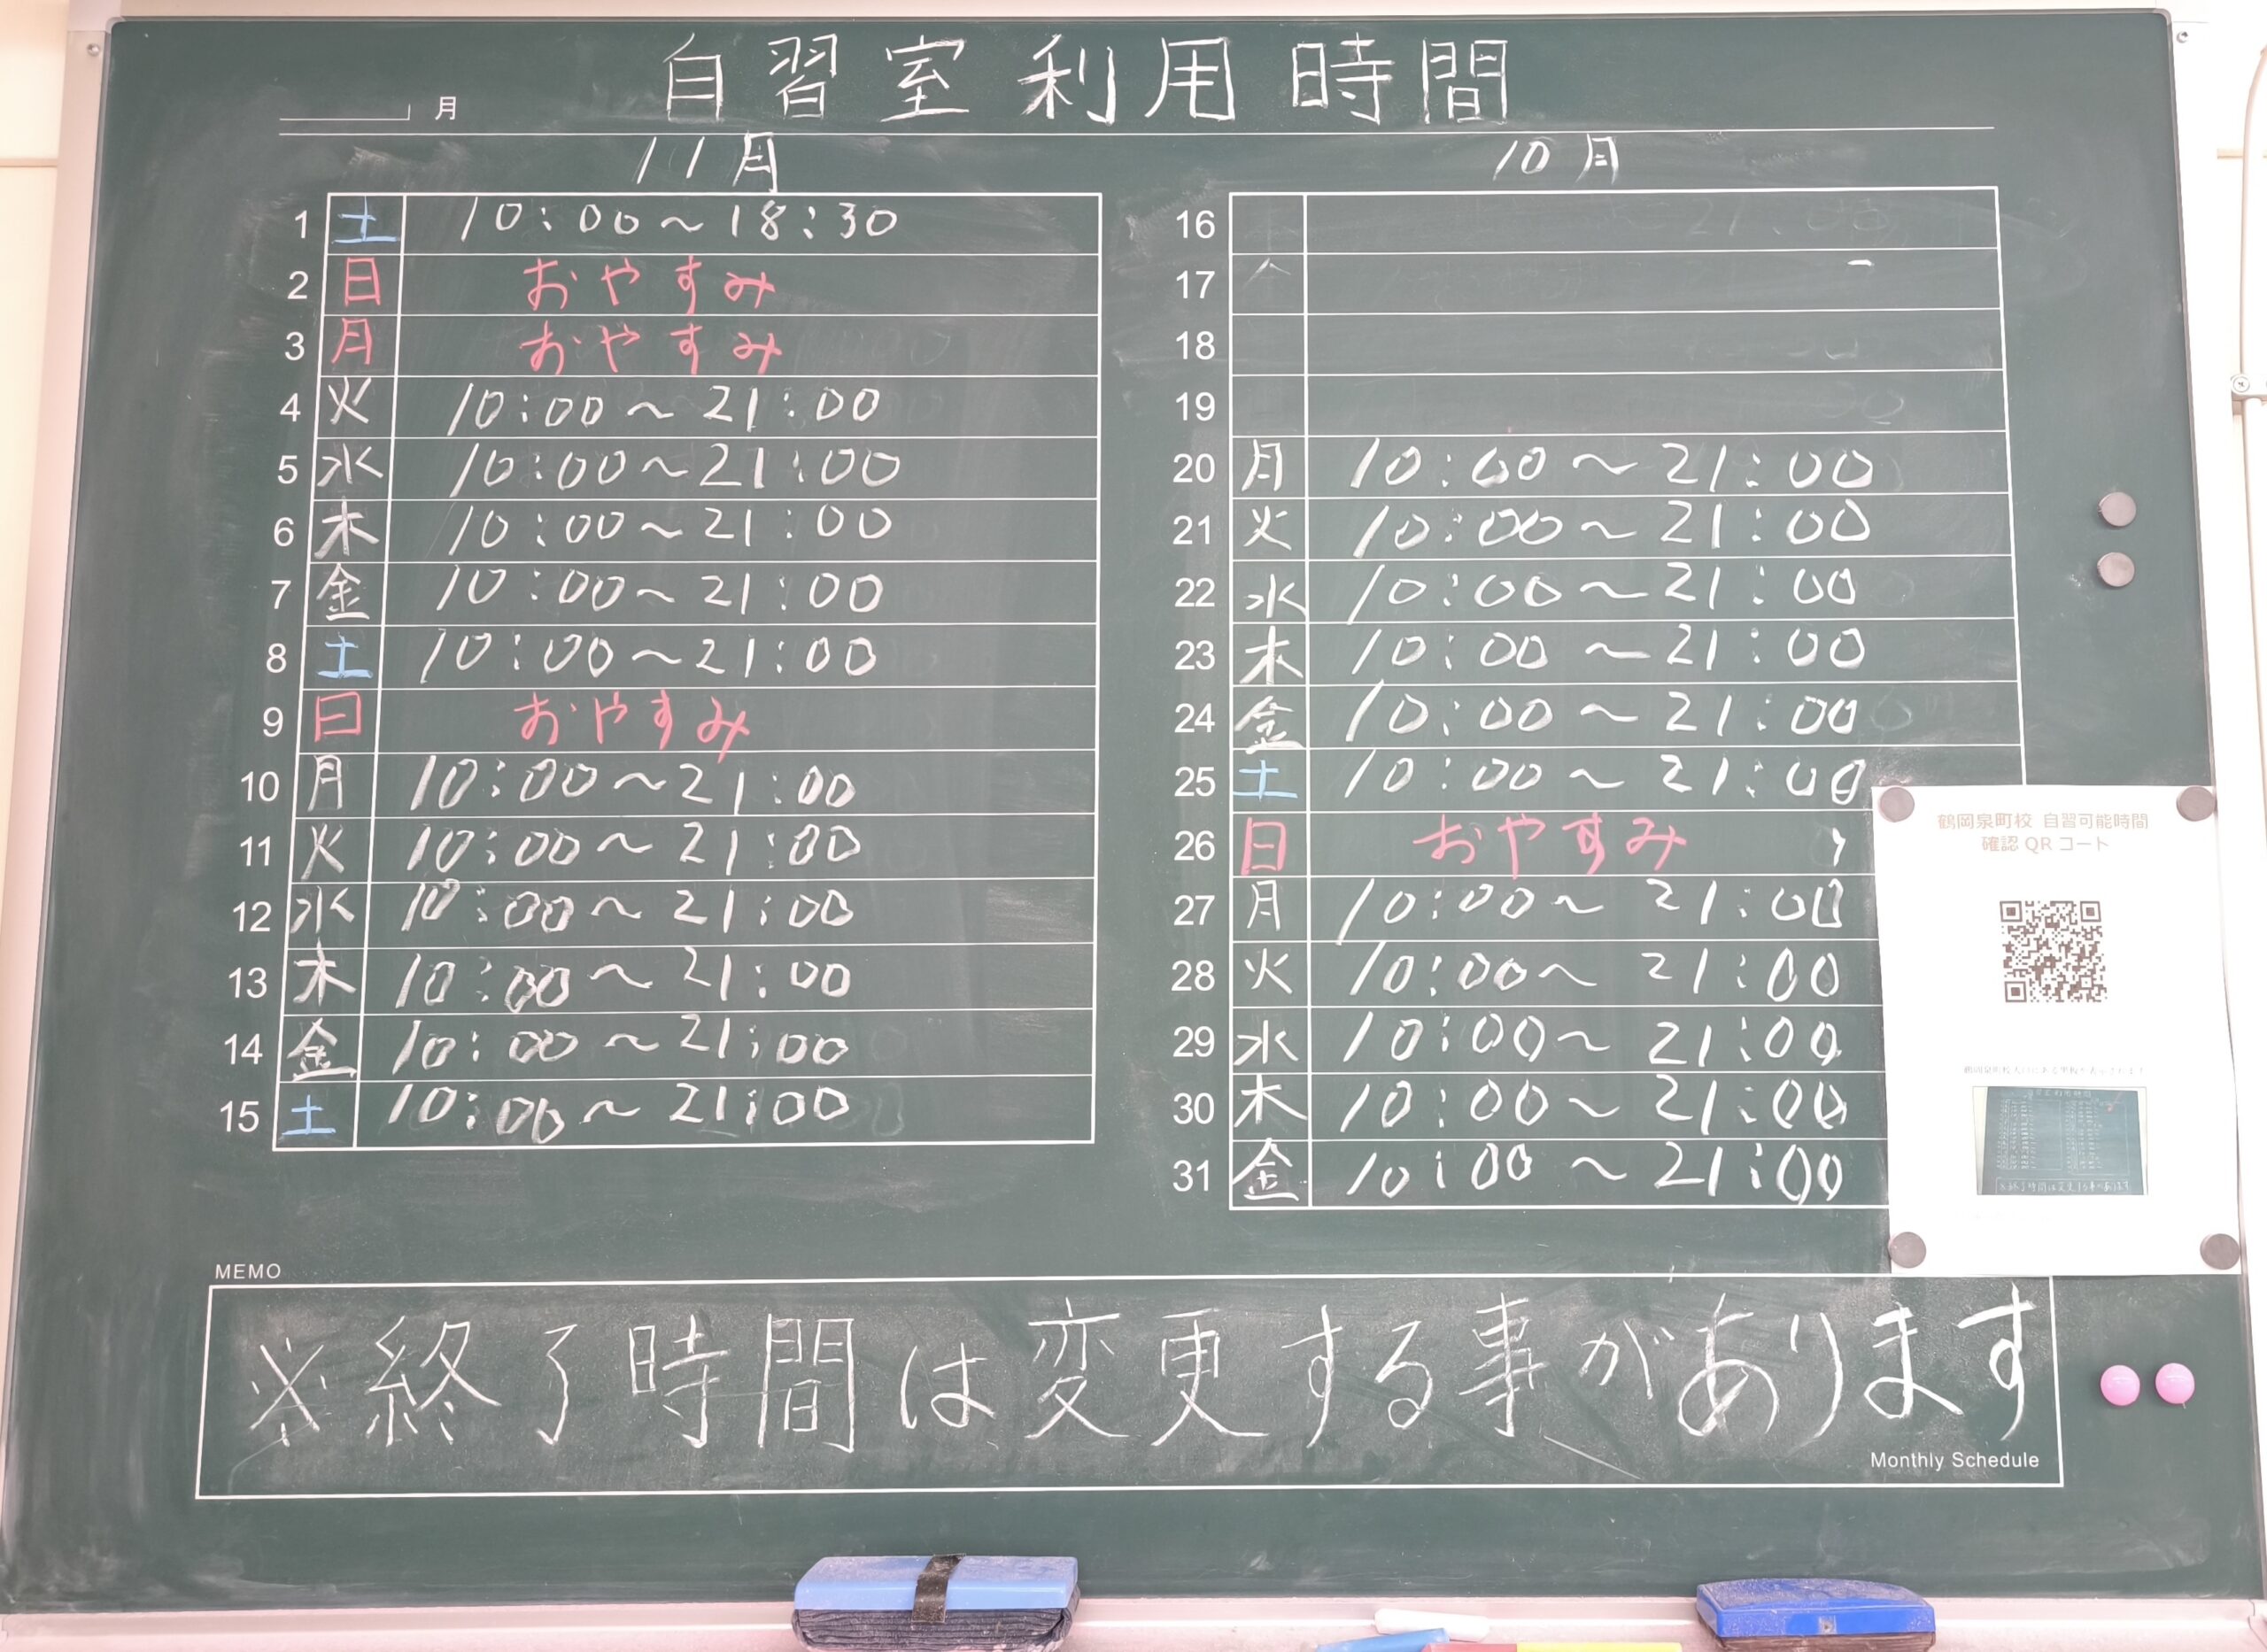 自習室利用時間
月
11月
1 土 10:00~18:30
2 日 おやすみ
3 月 おやすみ
4 火 10:00~21:00
5 水 10:00~21:00
6 木 10:00~21:00
7 金 10:00~21:00
8 土 10:00~21:00
9 日 おやすみ
10 月 10:00~21:00
11 火 10:00~21:00
12 水 10:00~21:00
13 木 10:00~21:00
14 金 10:00~21:00
15 土 10:00~21:00
10月
16
17
18
19
20 月 10:00~21:00
21 火 10:00~21:00
22 水 10:00~21:00
23 木 10:00~21:00
24 金 10:00~21:00
25 土 10:00~21:00
26 日 おやすみ
27 月 10:00~21:00
28 火 10:00~21:00
29 水 10:00~21:00
30 木 10:00~21:00
31 金 10:00~21:00
鶴岡泉町校 自習可能時間
確認QRコート
MEMO
※終了時間は変更する事があります
Monthly Schedule